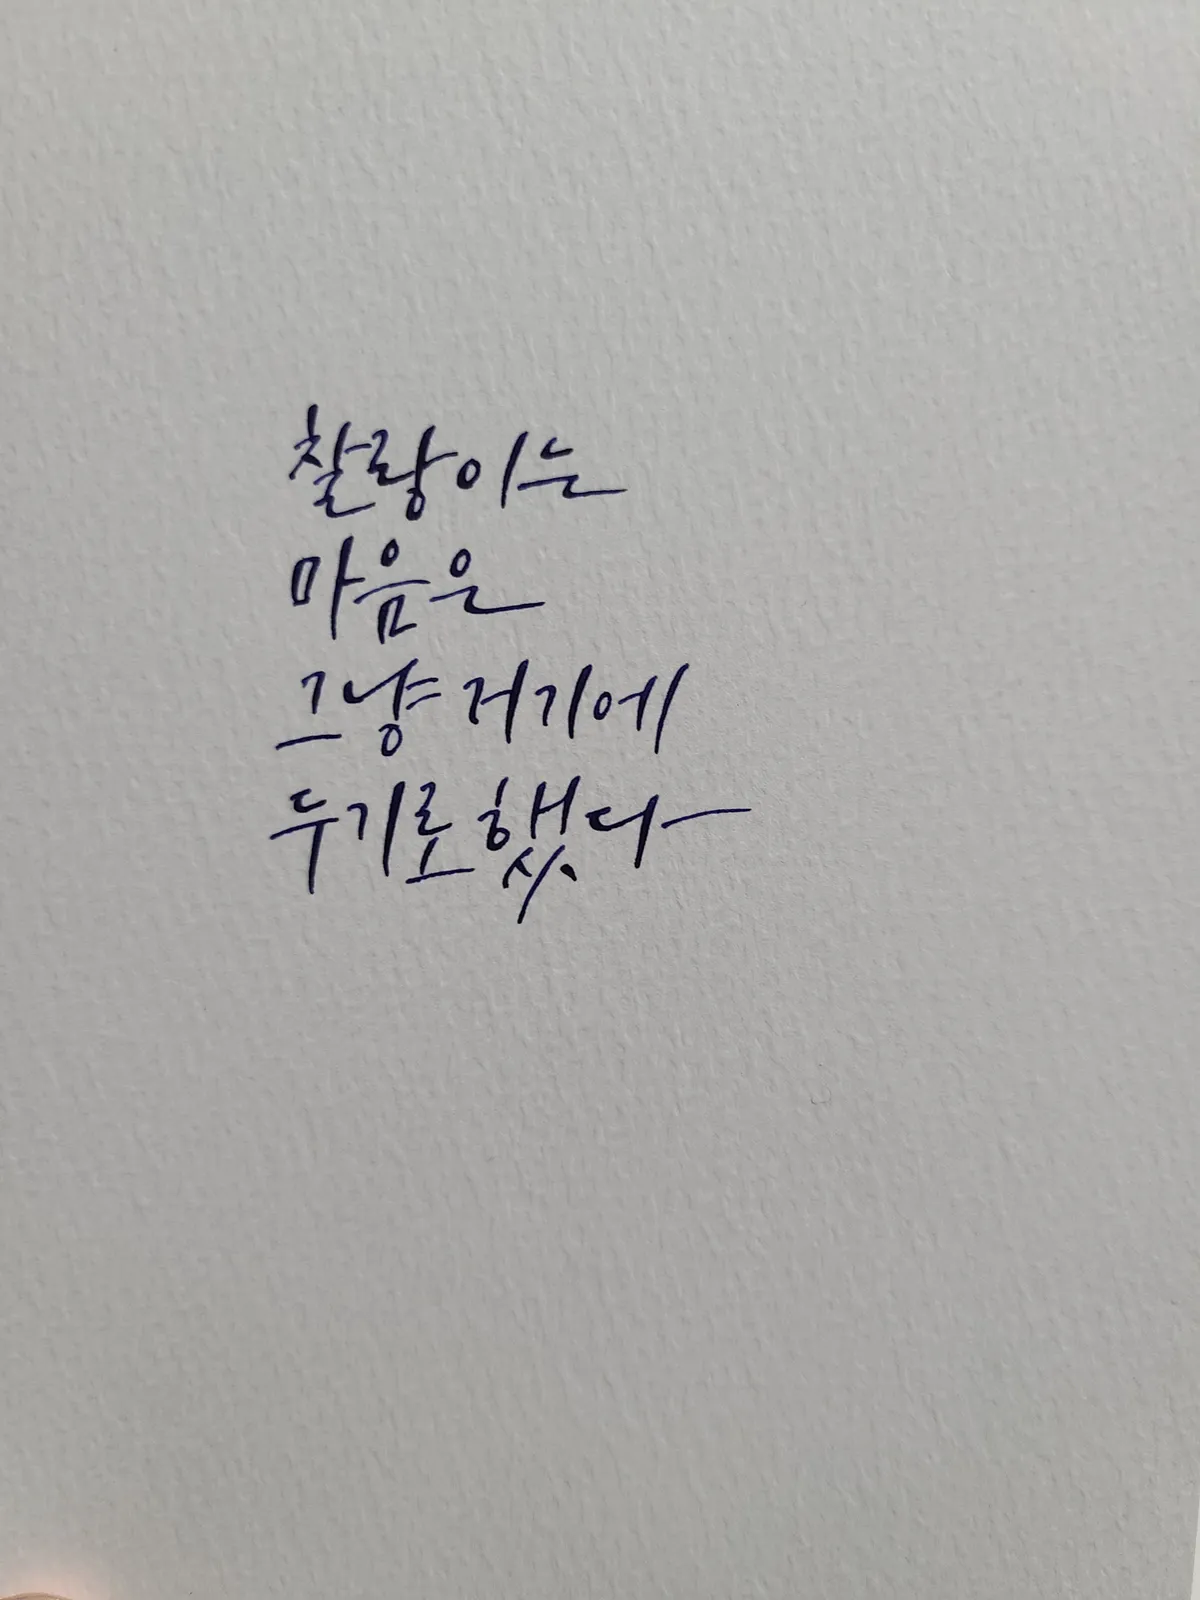 찰랑이는
마음은
그냥 거기에
두기로 했다